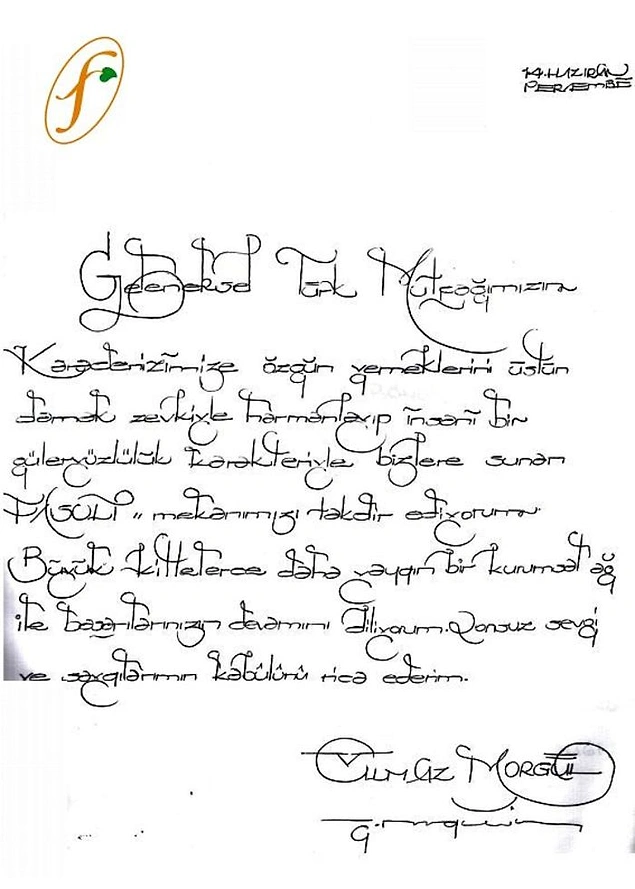 f
14.HAZİRAN
PERŞEMBE
Geleneksel Türk Mütfağımızın
Karadenizimize özgün yemeklerini üstün
damak zevkiyle harmanlayıp insani bir
güleryüzlülük karakteriyle bizlere sunan
FASULİ" mekanımızı takdir ediyorum.
Büyük kittelerce daha yaygın bir kurumsal ağ
ile başarılarınızın devamını diliyorum. Sonsuz sevgi
ve saygılarımın kabûlünü rica ederim.
YILMAZ MORGÜL